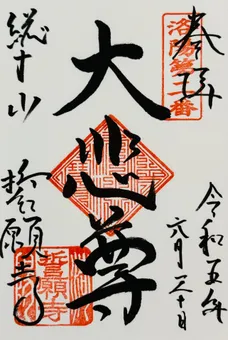 奉拝
洛陽第二番
令和五年
六月三十日
大悲尊
総本山
誓願寺
誓願寺